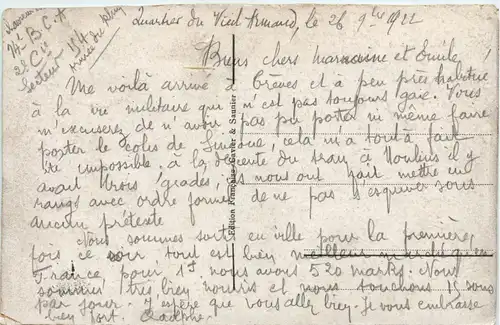 Quartier du Vieil Armand, le 26 9bre 1922
14e B.C.A
2e Cie
Secteur 154
armée du Rhin
Biens chers marraine et Emile,
Me voilà arrivé à Trèves et à peu près habitué
à la vie militaire qui n'est pas toujours gaie. Vous
m'excuserez de n'avoir pas pu porter ni même faire
porter le colis de Simone, cela m'a tout à fait
été impossible, à la descente du train à Moulins il y
avait trois gradés, ils nous ont fait mettre en
rangs avec ordre formel de ne pas s'esquiver sous
aucun prétexte
Nous sommes sortis en ville pour la première
fois ce soir tout est bien meilleur marché qu'en
France pour 1f nous avons 520 marks. Nous
sommes très bien nourris et nous touchons 15 sous
par jour. J'espère que vous allez bien. Je vous embrasse
bien fort. Adolphe
Edition Française Cavier & Saunier